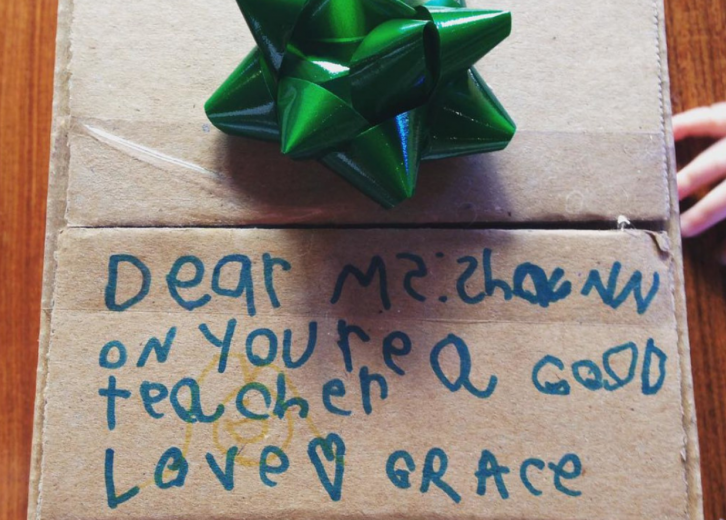 Dear Ms: Shoe NN
ON YOU're a GOOD
teacher
Love GRAce